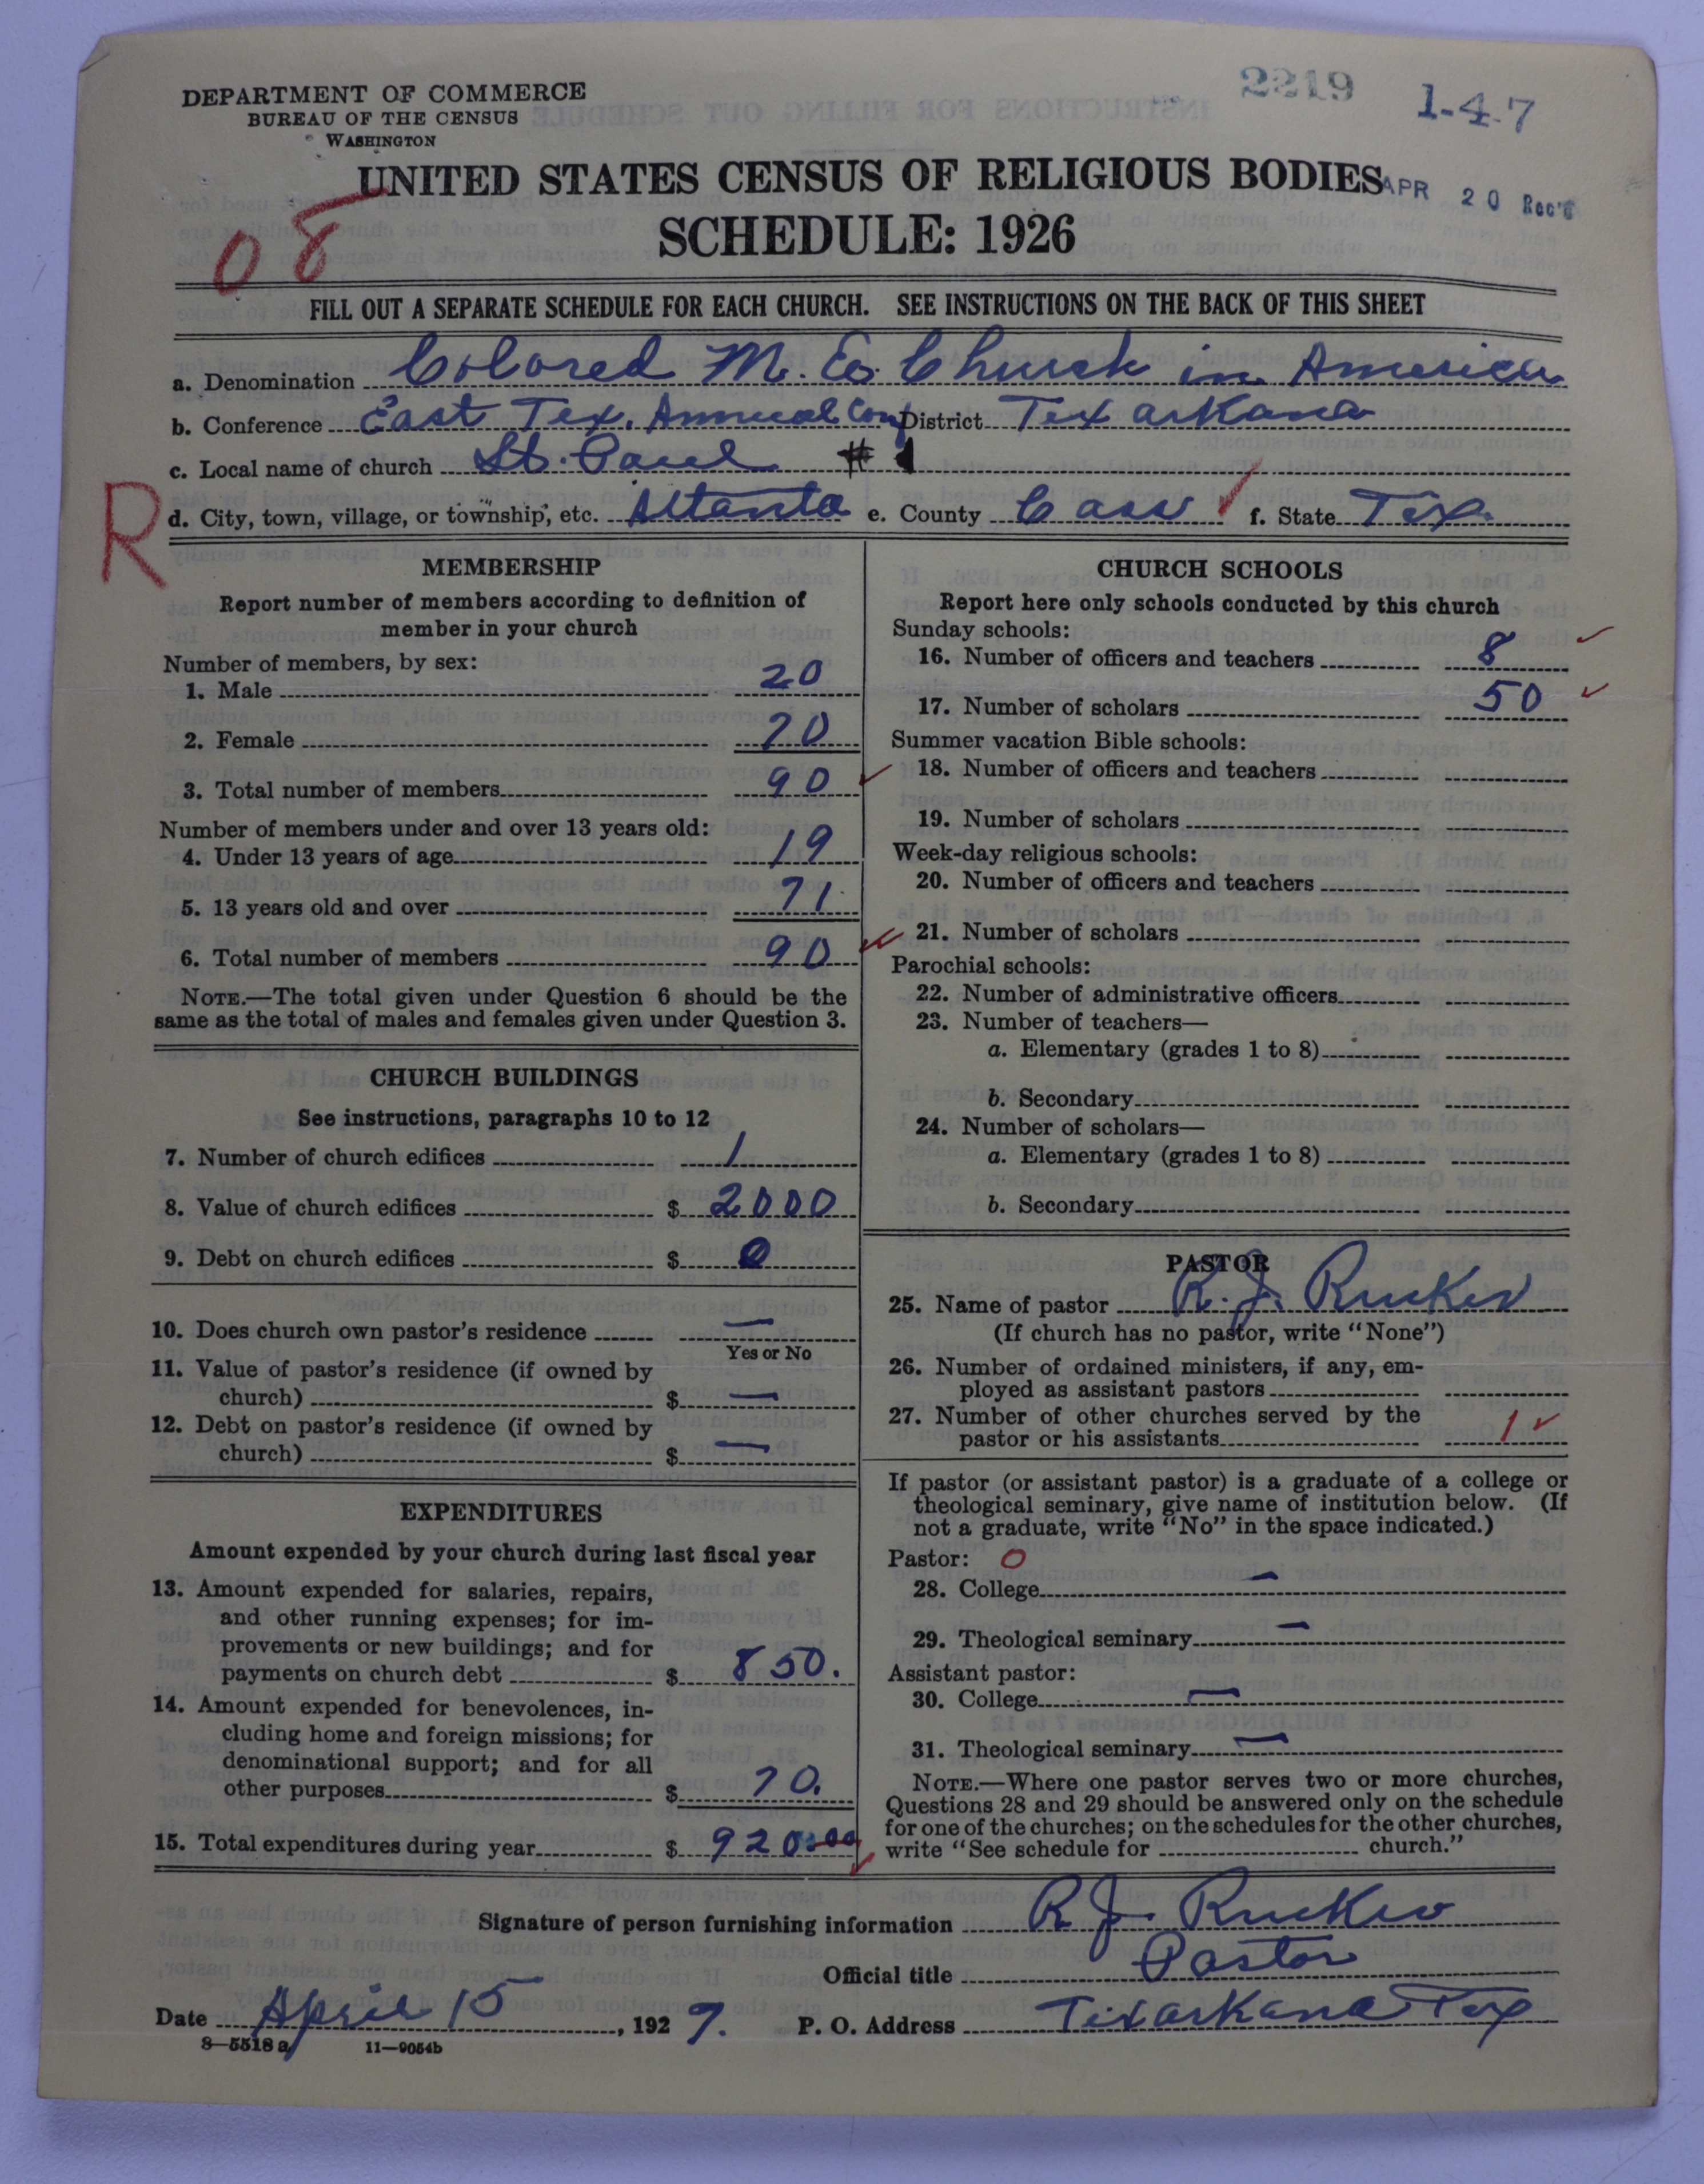 DEPARTMENT OF COMMERCE
BUREAU OF THE CENSUS
WASHINGTON
2219
1-4-7
UNITED STATES CENSUS OF RELIGIOUS BODIES
APR 20 Rec'd
SCHEDULE: 1926
08
FILL OUT A SEPARATE SCHEDULE FOR EACH CHURCH. SEE INSTRUCTIONS ON THE BACK OF THIS SHEET
a. Denomination Colored M. E. Church in America
b. Conference East Tex. Annual Conf District Texarkana
c. Local name of church St. Paul # 1
R
d. City, town, village, or township, etc. Atlanta e. County Cass f. State Tex.
MEMBERSHIP
Report number of members according to definition of
member in your church
Number of members, by sex:
1. Male 20
2. Female 70
3. Total number of members 90
Number of members under and over 13 years old:
4. Under 13 years of age 19
5. 13 years old and over 71
6. Total number of members 90
NOTE.—The total given under Question 6 should be the
same as the total of males and females given under Question 3.
CHURCH BUILDINGS
See instructions, paragraphs 10 to 12
7. Number of church edifices 1
8. Value of church edifices $ 2000
9. Debt on church edifices $ 0
10. Does church own pastor's residence —
Yes or No
11. Value of pastor's residence (if owned by
church) $ —
12. Debt on pastor's residence (if owned by
church) $ —
EXPENDITURES
Amount expended by your church during last fiscal year
13. Amount expended for salaries, repairs,
and other running expenses; for im-
provements or new buildings; and for
payments on church debt $ 850.
14. Amount expended for benevolences, in-
cluding home and foreign missions; for
denominational support; and for all
other purposes $ 70.
15. Total expenditures during year $ 920.00
CHURCH SCHOOLS
Report here only schools conducted by this church
Sunday schools:
16. Number of officers and teachers 8
17. Number of scholars 50
Summer vacation Bible schools:
18. Number of officers and teachers
19. Number of scholars
Week-day religious schools:
20. Number of officers and teachers
21. Number of scholars
Parochial schools:
22. Number of administrative officers
23. Number of teachers—
a. Elementary (grades 1 to 8)
b. Secondary
24. Number of scholars—
a. Elementary (grades 1 to 8)
b. Secondary
PASTOR
25. Name of pastor R. J. Rucker
(If church has no pastor, write "None")
26. Number of ordained ministers, if any, em-
ployed as assistant pastors
27. Number of other churches served by the
pastor or his assistants 1
If pastor (or assistant pastor) is a graduate of a college or
theological seminary, give name of institution below. (If
not a graduate, write "No" in the space indicated.)
Pastor: 0
28. College —
29. Theological seminary —
Assistant pastor:
30. College —
31. Theological seminary —
NOTE.—Where one pastor serves two or more churches,
Questions 28 and 29 should be answered only on the schedule
for one of the churches; on the schedules for the other churches,
write "See schedule for church."
Signature of person furnishing information R J. Rucker
Official title Pastor
Date April 15, 1927. P. O. Address Texarkana Tex
8—5518a 11—9054b